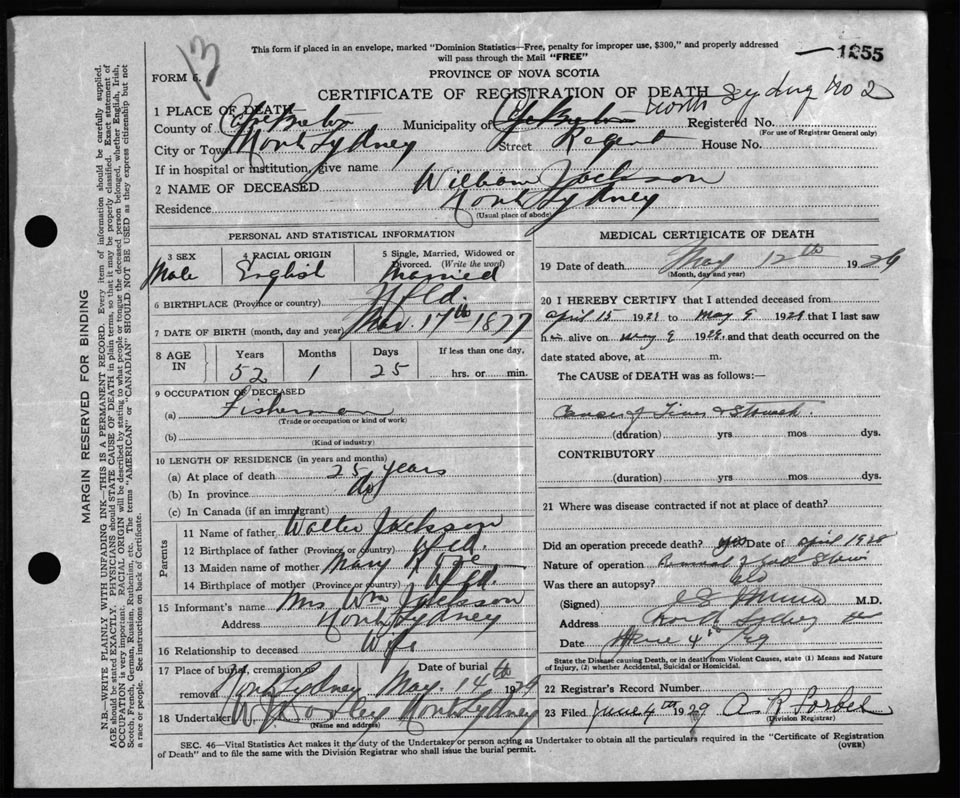 13
This form if placed in an envelope, marked "Dominion Statistics—Free, penalty for improper use, $300," and properly addressed
will pass through the Mail "FREE"
1255
FORM 6.
PROVINCE OF NOVA SCOTIA
CERTIFICATE OF REGISTRATION OF DEATH
North Sydney No 2
1 PLACE OF DEATH
County of Cape Breton Municipality of Cape Breton Registered No.
(For use of Registrar General only)
City or Town North Sydney Street Regent House No.
If in hospital or institution, give name
2 NAME OF DECEASED William Jackson
Residence North Sydney
(Usual place of abode)
PERSONAL AND STATISTICAL INFORMATION
3 SEX 4 RACIAL ORIGIN 5 Single, Married, Widowed or
Divorced. (Write the word)
Male English Married
6 BIRTHPLACE (Province or country) Nfld.
7 DATE OF BIRTH (month, day and year) Mar. 17th 1877
8 AGE IN Years Months Days If less than one day,
52 1 25 hrs. or min.
9 OCCUPATION OF DECEASED
(a) Fisherman
(Trade or occupation or kind of work)
(b)
(Kind of industry)
10 LENGTH OF RESIDENCE (in years and months)
(a) At place of death 25 years
(b) In province do
(c) In Canada (if an immigrant)
Parents
11 Name of father Walter Jackson
12 Birthplace of father (Province or country) Nfld.
13 Maiden name of mother Mary
14 Birthplace of mother (Province or country) Nfld.
15 Informant's name Mrs. Wm Jackson
Address North Sydney
16 Relationship to deceased Wife
17 Place of burial, cremation or Date of burial
removal North Sydney May. 14th 1929
18 Undertaker North Sydney
(Name and address)
MEDICAL CERTIFICATE OF DEATH
19 Date of death May 12th 1929
(Month, day and year)
20 I HEREBY CERTIFY that I attended deceased from
April 15 192 to May 9 1929 that I last saw
h alive on May 9 192 , and that death occurred on the
date stated above, at m.
The CAUSE of DEATH was as follows:—
Cancer of Liver & Stomach.
(duration) yrs mos dys.
CONTRIBUTORY
(duration) yrs mos dys.
21 Where was disease contracted if not at place of death?
Did an operation precede death? yes Date of April 1928
Nature of operation Removal of
Was there an autopsy? No
(Signed) M.D.
Address North Sydney
Date June 4th /29
State the Disease causing Death, or in death from Violent Causes, state (1) Means and Nature
of Injury, (2) whether Accidental, Suicidal or Homicidal.
22 Registrar's Record Number
23 Filed June 4th 1929 A. R.
(Division Registrar)
SEC. 46—Vital Statistics Act makes it the duty of the Undertaker or person acting as Undertaker to obtain all the particulars required in the "Certificate of Registration
of Death" and to file the same with the Division Registrar who shall issue the burial permit. (OVER)
MARGIN RESERVED FOR BINDING
N.B.—WRITE PLAINLY WITH UNFADING INK—THIS IS A PERMANENT RECORD. Every item of information should be carefully supplied.
AGE should be stated EXACTLY. PHYSICIANS should STATE CAUSE OF DEATH in plain terms, so that it may be properly classified. Exact statement of
OCCUPATION is very important. RACIAL ORIGIN will be described by stating to what people or tongue the deceased person belonged, whether English, Irish,
Scotch, French, German, Russian, Ruthenian, etc. The terms "AMERICAN" or "CANADIAN" SHOULD NOT BE USED as they express citizenship but not
a race or people. See instructions on back of Certificate.